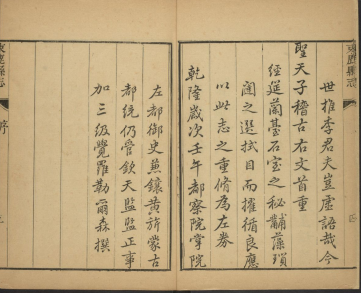 世推李君夫豈虛語哉今
聖天子稽古右文首重
經筵蘭臺石室之秘黼藻瑣
闥之選拭目而擢循良應
以此志之重脩為左券
乾隆歲次壬午都察院掌院
左都御史兼鑲黃旂蒙古
都統仍管欽天監監正事
加三級覺羅勒爾森撰
序